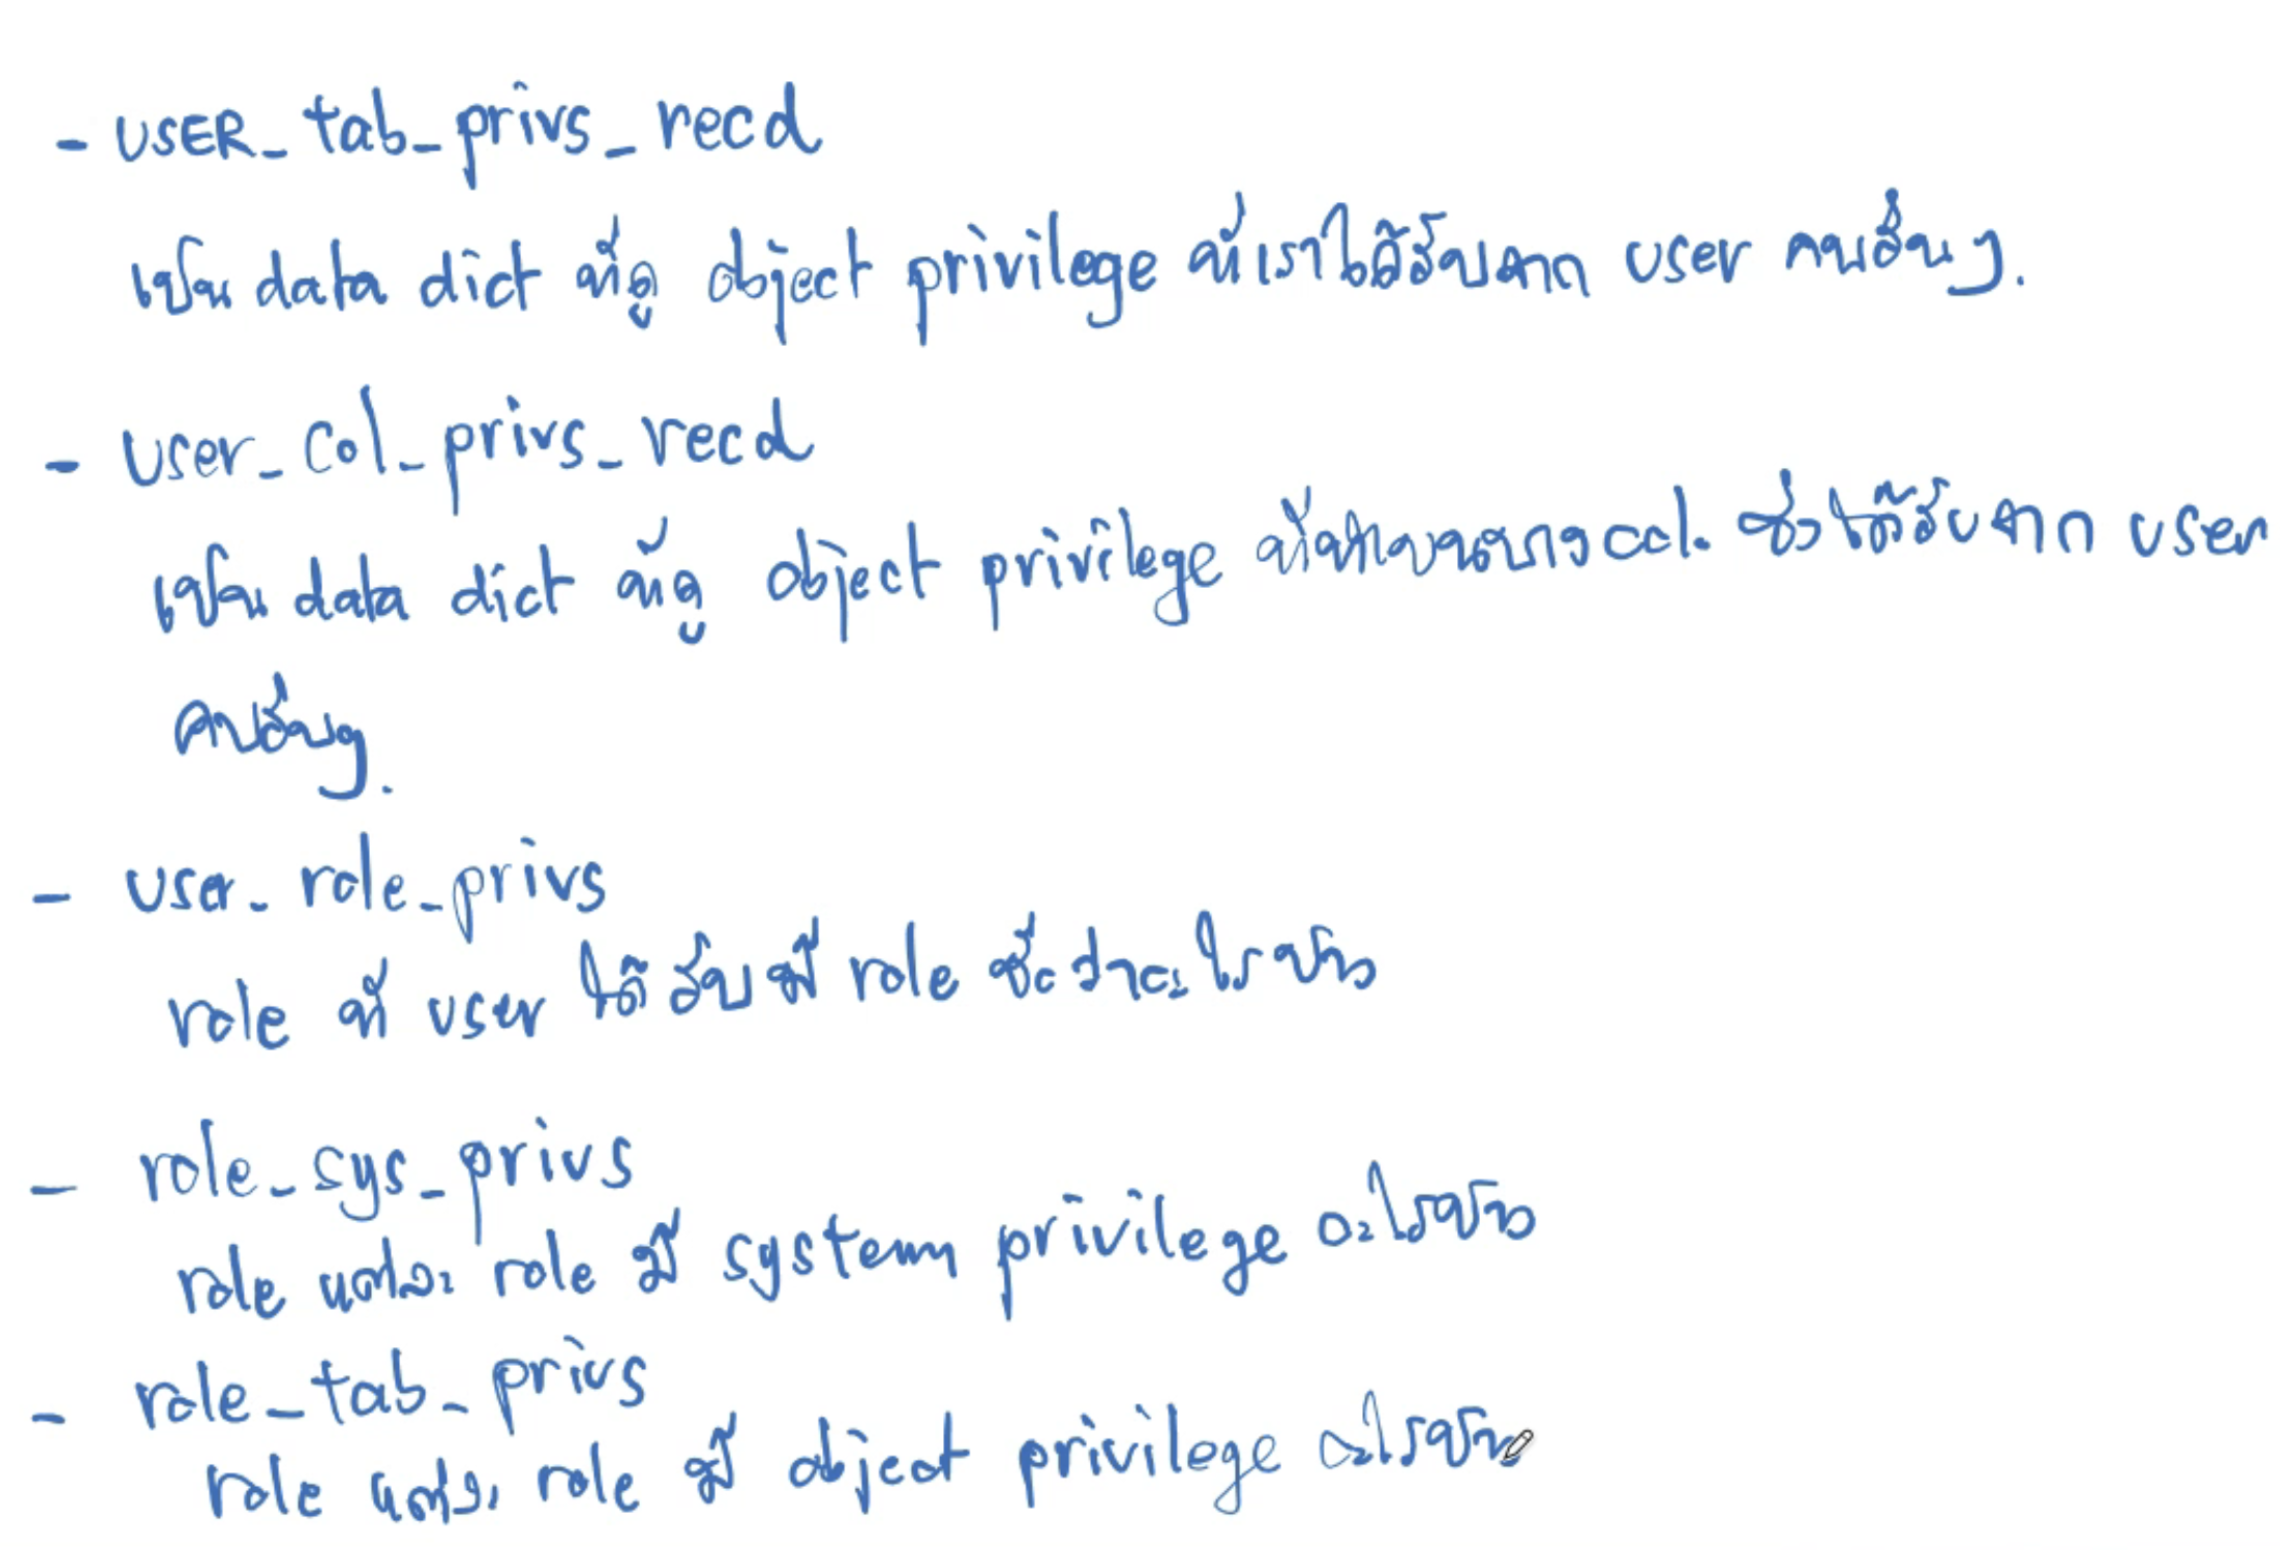 - USER_tab_privs_recd
เป็น data dict ที่ดู object privilege ที่เราได้รับจาก user คนอื่นๆ.
- user_col_privs_recd
เป็น data dict ที่ดู object privilege ที่ทำบนบาง col. ซึ่งได้รับจาก user
คนอื่นๆ.
- user_role_privs
role ที่ user ได้รับมี role ชื่อว่าอะไรบ้าง
- role_sys_privs
role แต่ละ role มี system privilege อะไรบ้าง
- role_tab_privs
role แต่ละ role มี object privilege อะไรบ้าง